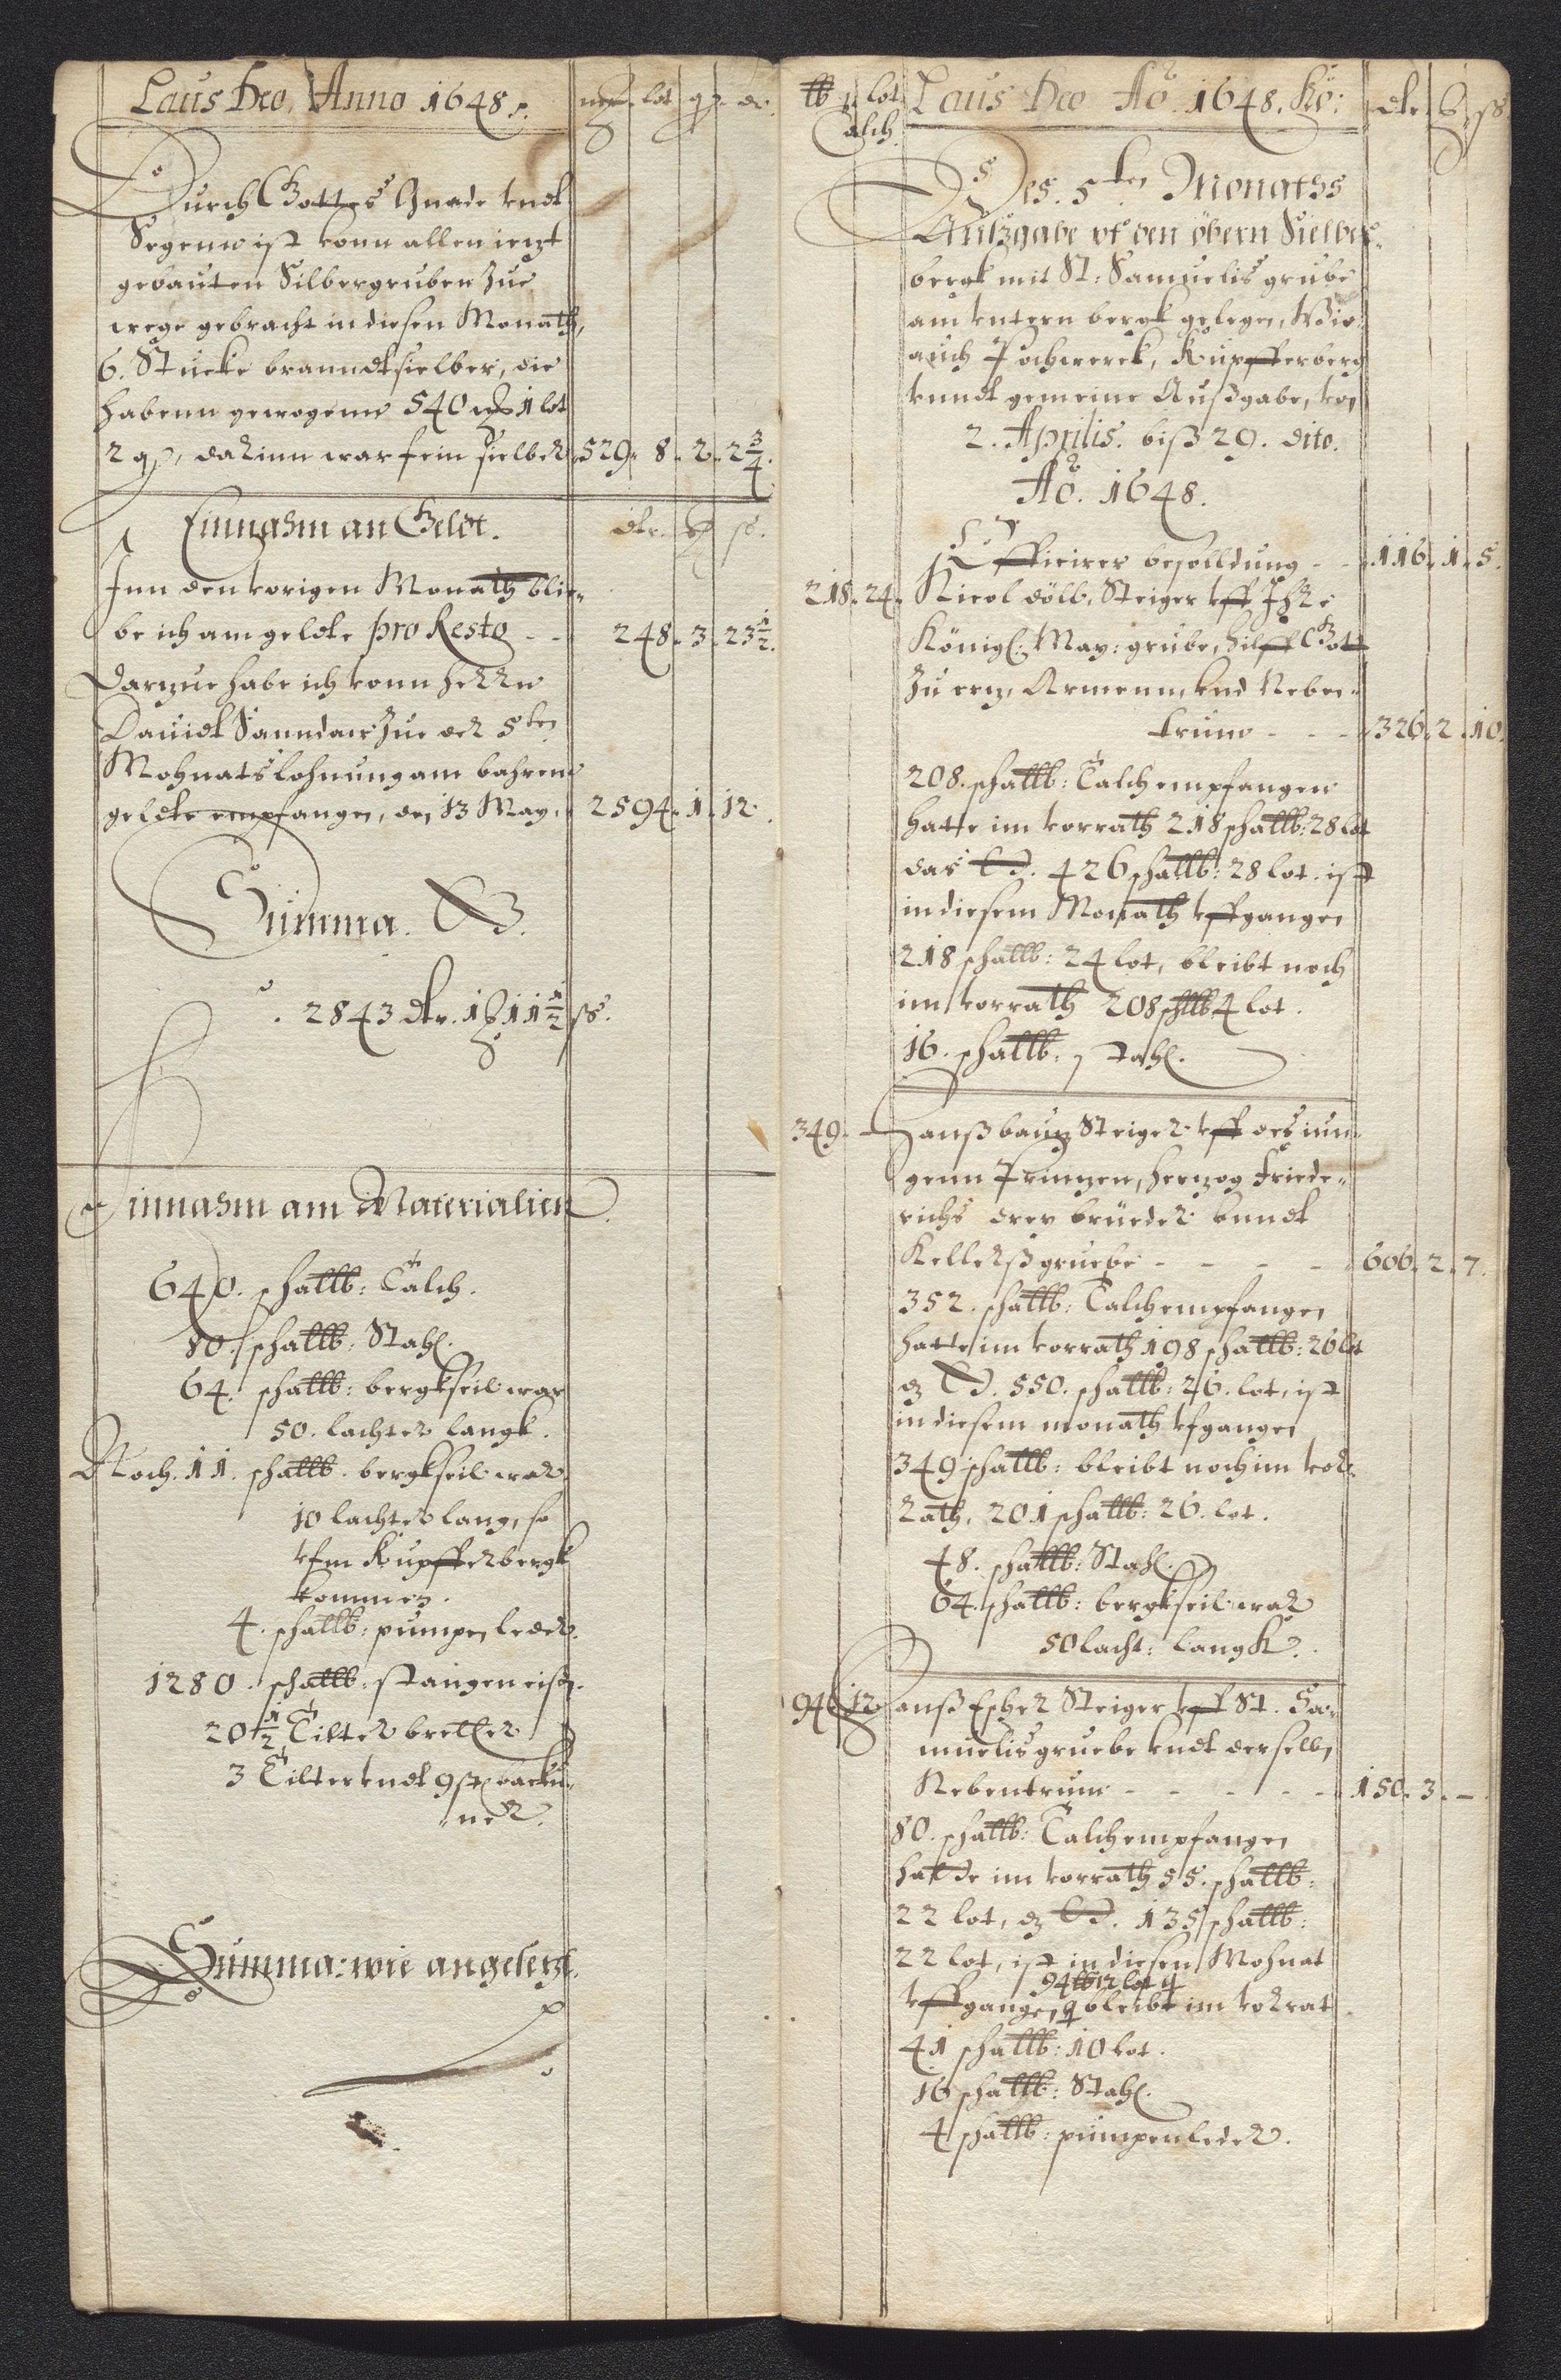 Laus Deo, Anno 1648.
lot
Durch Gottes Gnade vndt
Segenn ist vonn allen ietzt
gebauten Silbergruben zue
wege gebracht in diesen Monath,
6. Stucke branndtsielber, die
habenn gewogenn 540 1 lot
2 darinn war fein sielber 529. 8. 2. 2 3/4.
Einnahm an Geldt.
Inn den vorigen Monath blie-
be ich am geldte pro Resto - - 248. 3. 23 1/2.
Darzue habe ich vonn Herrn
Dauidt zue der 5ten
Mohnats lohnung am bahrenn
geldte empfangen, den 13 May. 2594. 1. 12.
Summa.
2843 dlr. 1 11 1/2 ß.
Einnahm am Materialien
640. schallb: Talch.
80. schallb: Stahl.
64. schallb: bergkseil war
50. lachter langk.
Noch. 11. schallb. bergkseil war
10 lachter lang, so
vfm Kupfferbergk
kommen.
4. schallb: pumpen leder.
1280. schallb: stangen eisen.
20 1/2 Tilter bretter
3 Tilter vndt 9
ner.
Summa: wie angesetzt.
lb lot
Talch
Laus Deo Aō. 1648. Kō:
dlr. ß
Des. 5ten Monaths
Außgabe vf den öbern Sielber-
bergk mit St: Samuelis grube
am vntern bergk gelegen, Wie
auch Pochwerck, Kupfferberg
vnndt gemeine Außgabe, von
2. Aprilis. biß 29. dito.
Aō. 1648.
Officirer besolldung - - 116. 1. 5.
218. 24. Nicol dölb, Steiger vff Ihre
Königl: May: grube, hilff Gott
zu ertz, Armenn, vnd Neben-
trum - - - 326. 2. 10.
208. schallb: Talch empfangen
hatte im vorrath 218 schallb: 28 lot
das 426 schallb: 28 lot. ist
in diesem Monath vffgangen
218 schallb: 24 lot, bleibt noch
im vorrath 208 schllb 4 lot.
16. schallb: stahl.
349. - Hanß bautz Steiger vff des iun-
genn Printzen, hertzog Friede-
richs drey brueder vnndt
Kellerß gruebe - - - - 606. 2. 7.
352. schallb: Talch empfangen
hatte im vorrath 198 schallb: 26 lot
dz 550. schallb: 26. lot, ist
in diesem monath vfgangen
349 schallb: bleibt noch im vor-
rath, 201 schallb: 26. lot.
48. schallb: Stahl.
64. schallb: bergkseil war
50 lacht: langk.
94 12 Hanß Escher Steiger vff St. Sa-
muelis gruebe vndt derselben
Nebentrum - - - - - 150. 3. -
80. schallb: Talch empfangen
hatte im vorrath 55. schallb:
22 lot, dz 135 schallb:
22 lot, ist in diesen Mohnat
94 lb 12 lot
vffgangen, bleibt im vorrat
41 schallb: 10 lot.
16 schallb: Stahl.
4 schallb: pumpenleder.